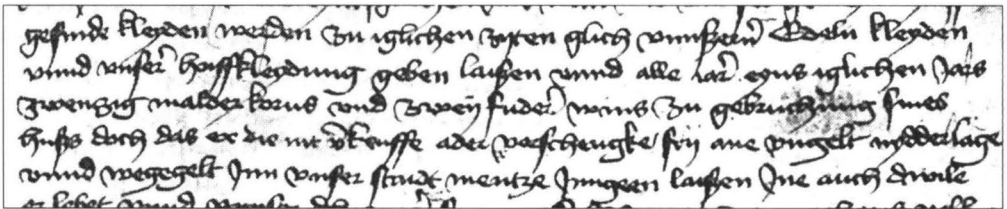 gesinde kleyden werden zu iglichen zyten glich vnnsern Edeln kleyden
vnnd vnser hoffkleydung geben laißen vnnd alle iar eyns iglichen Jars
zwenzig malder korns vnd zwey fuder wins zu gebruchung sines
huses doch das er die nit verkeuffe ader verschengke fry ane vngelt nydderlage
vnnd wegegelt Jnn vnser stadt mentze Jnngeen laißen Jne auch dwile
er lebet vnnd